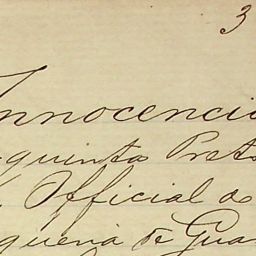 3
Innocencio
quinto Pret
Official do
queria de Gua